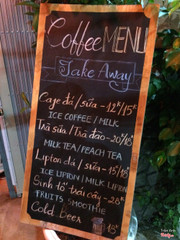 Coffee MENU
Take Away
Cafe đá / sữa - 12k/15k
ICE COFFEE / MILK
Trà sữa / Trà đào - 20/18k
MILK TEA / PEACH TEA
Lipton đá / sữa - 15/18k
ICE LIPTON / MILK LIPTON
Sinh tố trái cây - 28k
FRUITS SMOOTHIE
Cold Beer 15k